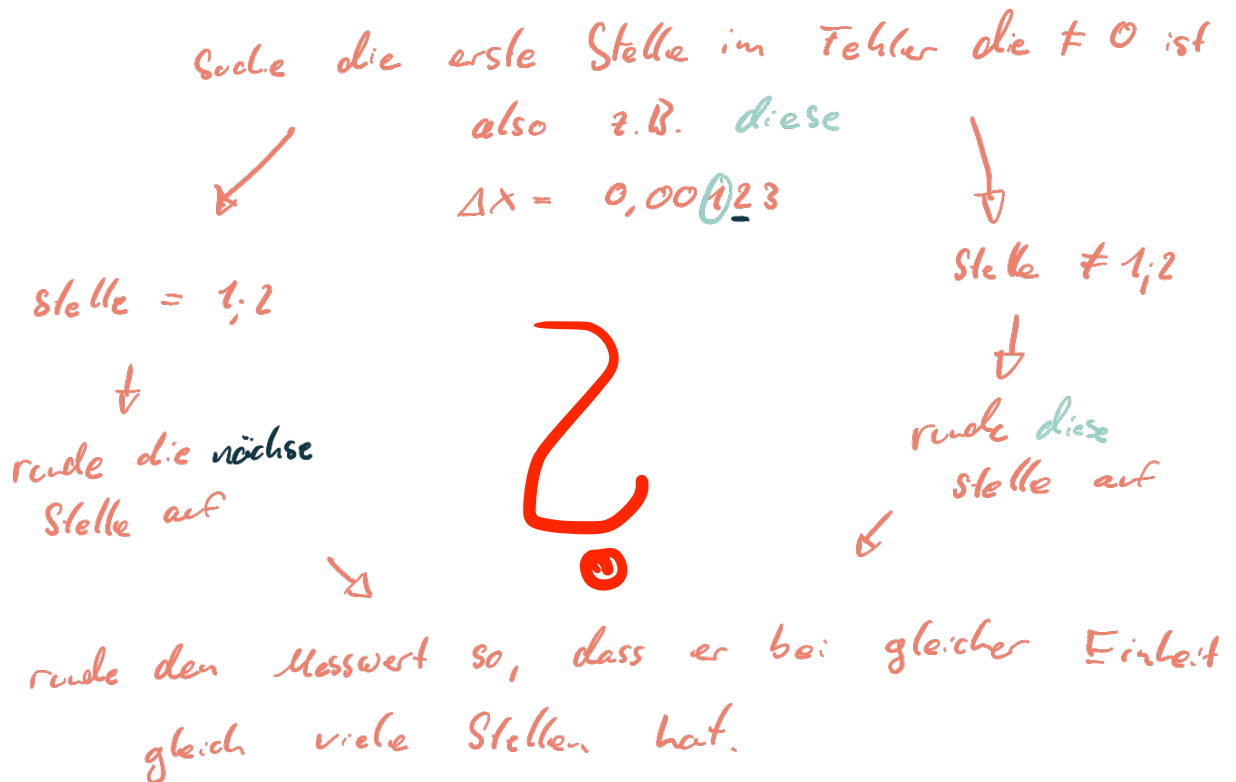 Suche die erste Stelle im Fehler die ≠ 0 ist
also z.B. diese
ΔX = 0,00123
Stelle = 1;2
Stelle ≠ 1;2
runde die nächse
Stelle auf
runde diese
Stelle auf
?
runde den Messwert so, dass er bei gleicher Einheit
gleich viele Stellen hat.